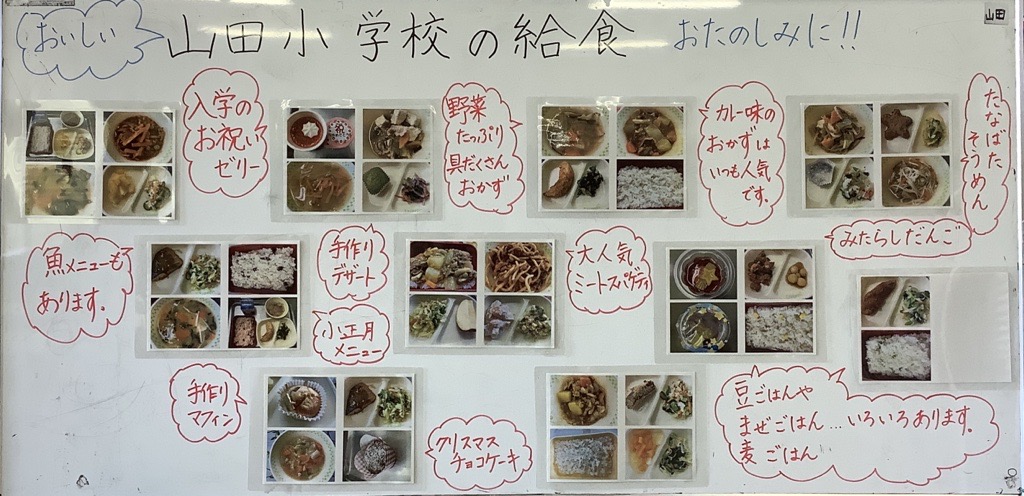 おいしい
山田小学校の給食
おたのしみに!!
山田
入学の
お祝い
ゼリー
野菜
たっぷり
具だくさん
おかず
カレー味の
おかずは
いつも人気
です。
たなばた
そうめん
魚メニューも
あります。
手作り
デザート
小正月
メニュー
大人気
ミートスパゲティ
みたらしだんご
手作り
マフィン
クリスマス
チョコケーキ
豆ごはんや
まぜごはん…いろいろあります。
麦ごはん